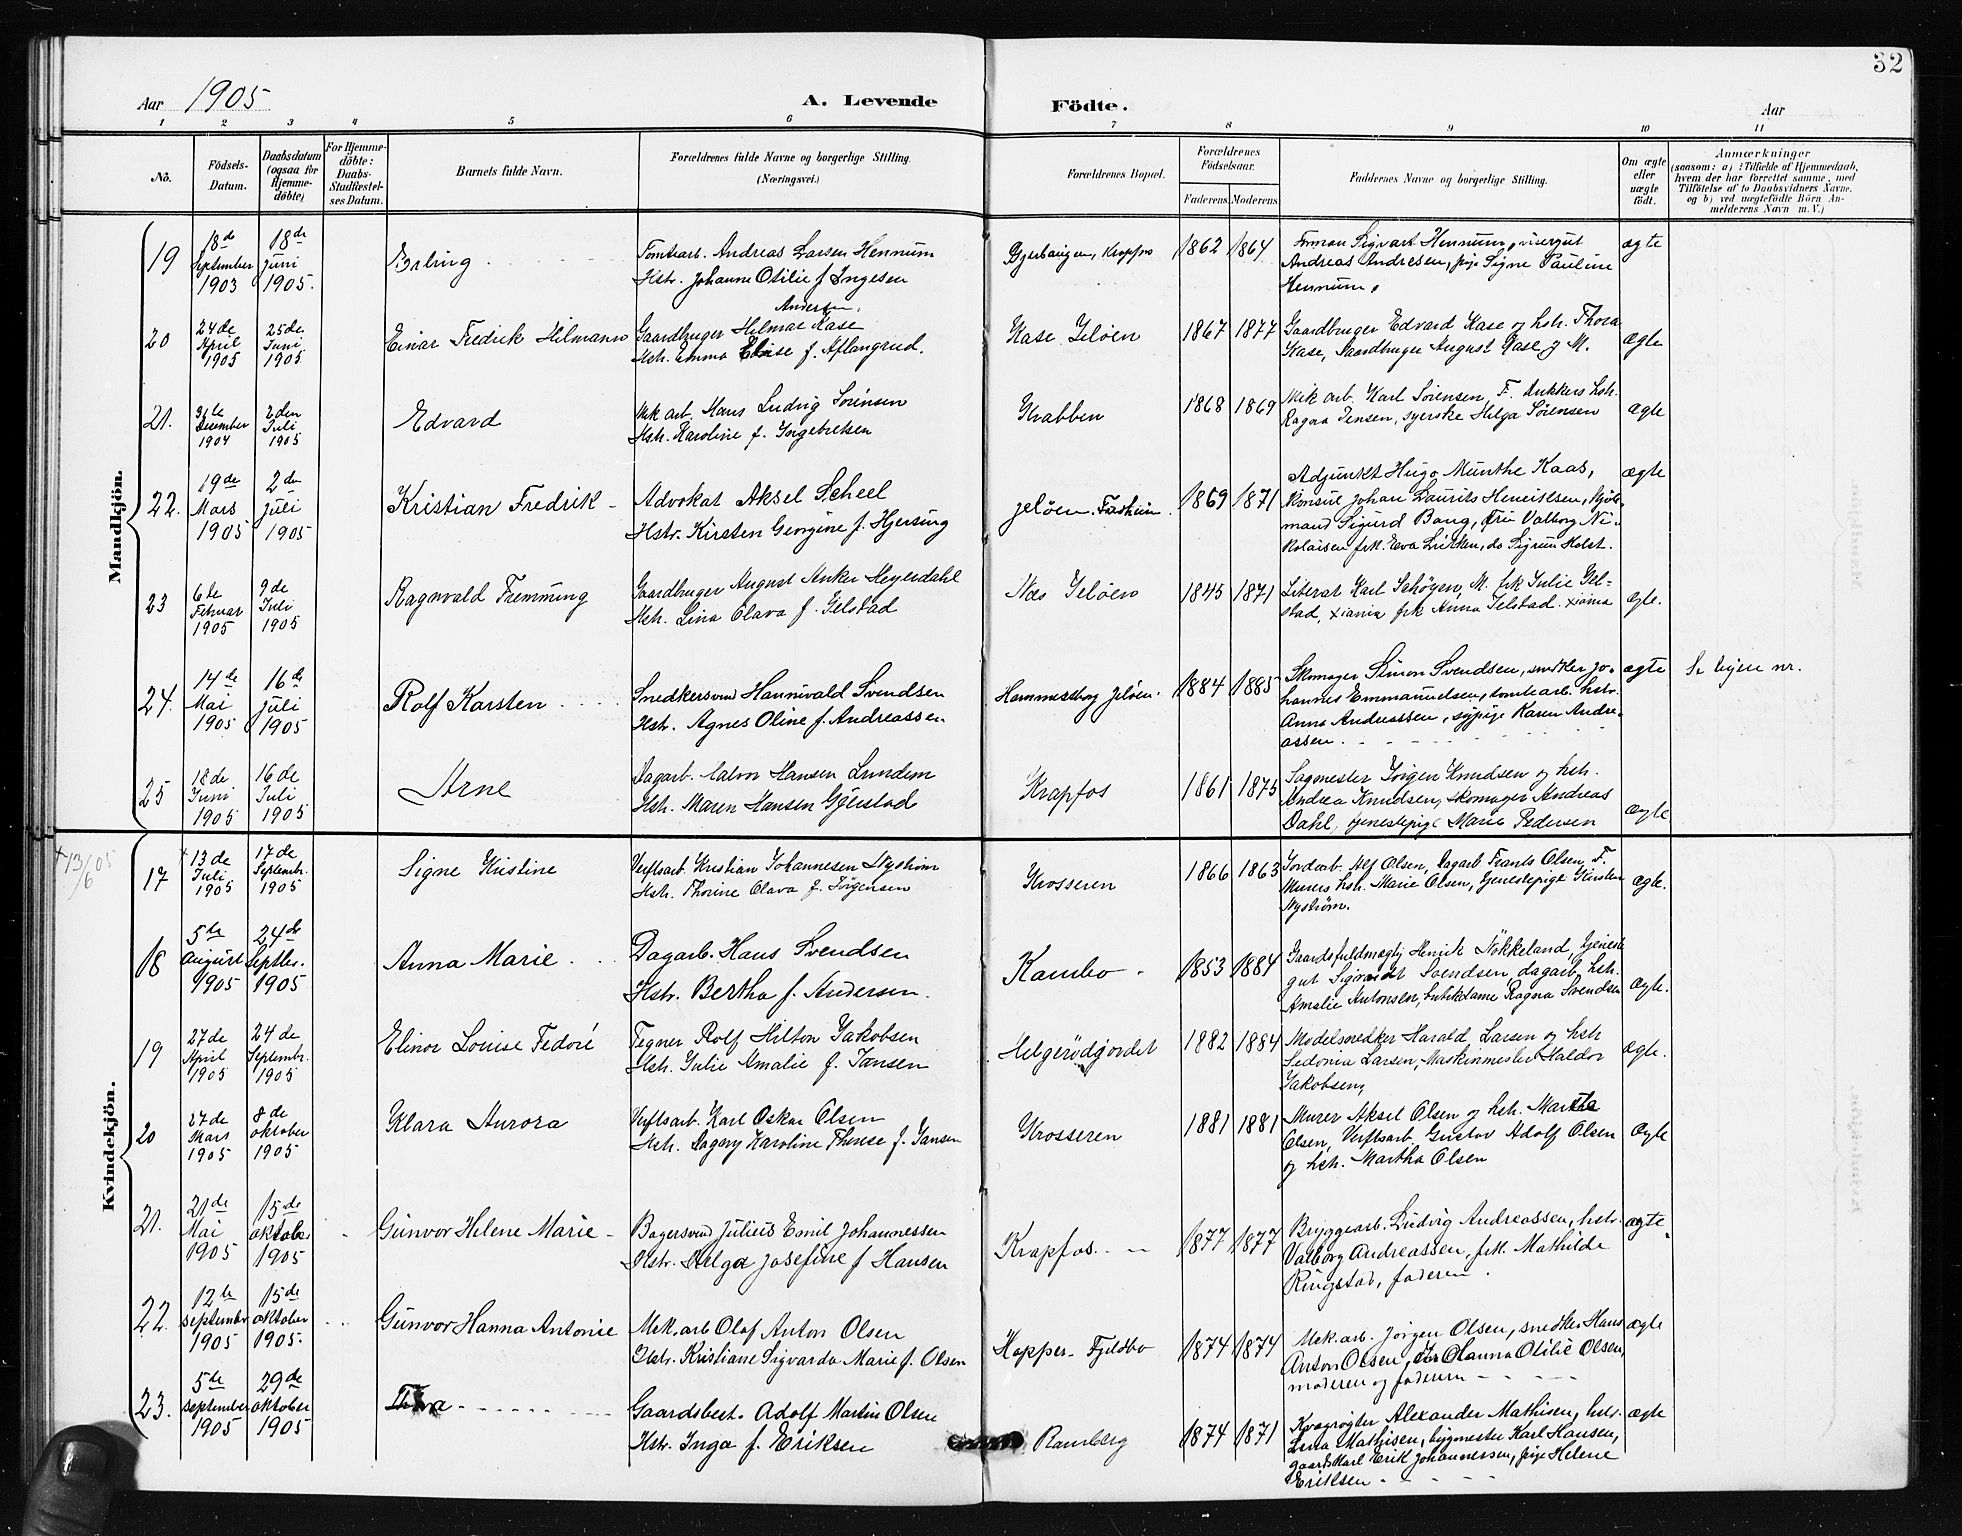 32
Aar 1905
A. Levende
Födte.
Aar
1 2 3 4 5 6 7 8 9 10 11
No.
Födsels-Datum.
Daabsdatum (ogsaa for Hjemme-döbte)
For Hjemme-döbte: Daabs-Stadfæstel-ses Datum.
Barnets fulde Navn.
Forældrenes fulde Navne og borgerlige Stilling.
(Næringsvei.)
Forældrenes Bopæl.
Forældrenes Födselsaar.
Faderens Moderens
Faddernes Navne og borgerlige Stilling.
Om ægte eller uægte födt.
Anmærkninger
(saasom: a) i Tilfælde af Hjemmedaab,
hvem der har forrettet samme, med
Tilföielse af to Daabsvidners Navne.
og b) ved uægtefödte Börn An-
melderens Navn m. V.)
Mandkjön.
19 18de September 1903 18de Juni 1905. Erling Tomtearb. Andreas Larsen Hennum
Hstr. Johanne Otilie f Ingesen
Krapfos 1862 1864 Formon Sigvart Hennum, visergut
Andreas Andresen, pige Signe Pauline
Hennum,
ægte
20 24de April 1905 25de Juni 1905 Einar Fredrik Hilmann Gaardbruger Hilmar Andersen Kase
Hstr. Emma Elise f. Aflangrud.
Kase Jeløen 1867 1877 Gaardbruger Edvard Kase og hstr. Thora
Kase, Gaardbruger August Kase, g M.
ægte
21. December 1904 2den Juli 1905 Edvard Mek arb. Hans Ludvig Sørensen
Hstr. Karoline f. Ingebretsen
Krabben 1868 1869 Mek arb. Karl Sørensen, F. hstr.
Ragna Jensen, syerske Helga Sørensen
ægte
22. 19de Mars 1905 2den Juli 1905 Kristian Fredrik Advokat Aksel Scheel
Hstr. Kirsten Georgine f. Hjersing
Jeløen 1869 1871 Adjunkt Hugo Munthe Kaas,
Konsul Johan Laurits Henriksen, kjøb-
mand Sigurd Bang, Fru Valborg Ni-
kolaisen frk. Eva Erikken, do Sigrun Holst.
ægte
23 6te Februar 1905 9de Juli 1905 Ragnvald Flemming Gaardbruger August Anker Heyerdahl
Hstr. Lina Olava f. Jelstad
Næs Jeløen 1845 1871 Literat Karl Schøyen, M. frk Julie Jel-
stad, Xiania frk Anna Jelstad. Xiania
ægte.
24. 14de Mai 1905 16de Juli 1905 Rolf Karsten Snedkersvend Hannivald Svendsen
Hstr. Agnes Oline f. Andreassen
Jeløen. 1884 1885 Skomager Simon Svendsen, snedker Jo-
hannes Emmanuelsen, tomtearb. hstr.
Anna Andreassen, sypige Karen Andre-
assen.
ægte nr.
25 18de Juni 1905 16de Juli 1905 Arne Dagarb. Halvor Hansen Lundem
Hstr. Maren Hansen Gjerstad
Krapfos 1861 1875 Sagmester Jørgen Knudsen og hstr.
Andrea Knudsen, skomager Andreas
Dahl, tjenestepige Marie Pedersen
ægte
Kvindekjön.
†13/6 05
17 †13de Juli 1905 17de Septembr. 1905 Signe Kristine Verftsarb. Kristian Johannesen Nystrøm
Hstr. Thorine Olava f. Jørgensen
Krosseren 1866 1863 Jordarb. Alf Olsen, Dagarb Frants Olsen, F.
Murers hstr. Marie Olsen, tjenestepige Kirsten
Nystrøm.
ægte.
18 5te August 1905 24de Septbr. 1905 Anna Marie Dagarb. Hans Svendsen
Hstr. Bertha f. Andersen.
Kambo 1853 1884 Gaardsfuldmægtig Henrik Nøkkeland, tjeneste
gut Sigvardt Svendsen, dagarb. hstr.
Amalie Antonsen, butikdame Ragna Svendsen
ægte.
19 27de April 1905 24de Septembr. 1905 Elinor Louise Fedoré Tegner Rolf Hilton Jakobsen
Hstr. Julie Amalie f. Jansen
Helgerødgjordet 1882 1884 Modelsnedker Harald Larsen og hstr
Sedonia Larsen, Maskinmester Haldor
Jakobsen,
ægte.
20 27de Mars 1905 8de oktober 1905 Klara Aurora Verftsarb. Karl Oskar Olsen
Hstr. Dagny Karoline Therese f. Jansen
Krosseren 1881 1881 Murer Aksel Olsen og hstr. Martha
Olsen, Verftsarb. Gustav Adolf Olsen
og hstr. Martha Olsen
ægte
21. 21de Mai 1905 15de oktober 1905 Gunvor Helene Marie Bagersvend Julius Emil Johannessen
Hstr. Helga Josefine f Hansen
Krapfos. 1877 1877 Bryggearb. Ludvig Andreassen, hstr.
Valborg Andreassen, frk. Mathilde
Ringstad, faderen.
ægte
22. 12te september 1905 15de oktober 1905. Gunvor Hanna Antonie Mek. arb Olaf Anton Olsen
Hstr. Kristiane Sigvarda Marie f. Olsen
Hopper- Fjeldbo 1874 1874 Mek. arb. Jørgen Olsen, snedker Hans
Anton Olsen, Hanna Otilie Olsen,
moderen og faderen
ægte
23. 5te september 1905 29de oktober 1905 Gaardsbest. Adolf Martin Olsen
Hstr. Inga f. Eriksen
Ramberg 1874 1871 Kvægrøgter Alexander Mathisen, hstr.
Lina Mathisen, bygmester Karl Hansen,
gaardskarl Erik Johannessen, pige Helene
Eriksen
ægte